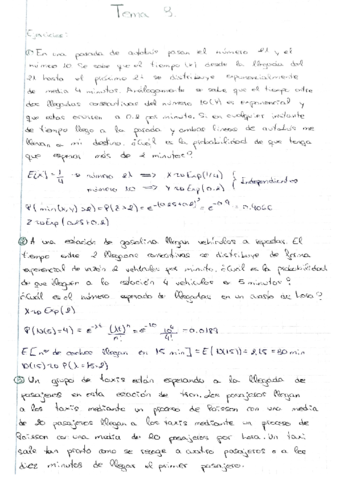 Tema 9.
Ejercicios:
1º En una parada de autobús pasan el número 21 y el
número 10. Se sabe que el tiempo (x) desde la llegada del
21 hasta el próximo 21 se distribuye exponencialmente
de media 4 minutos. Análogamente se sabe que el tiempo entre
dos llegadas consecutivas del número 10 (Y) es exponencial y
que estas ocurren a 0.2 por minuto. Si en cualquier instante
de tiempo llego a la parada y ambas líneas de autobús me
llevan a mi destino. ¿Cuál es la probabilidad de que tenga
que esperar más de 2 minutos?
número 21 => X~Exp(1/4)
número 10 => Y~Exp(0.2) } independientes
P(min(x,y)>2) = P(Z>2) = = 0.4066
Z~Exp(0.25+0.2)
② A una estación de gasolina llegan vehículos a repostar. El
tiempo entre 2 llegadas consecutivas se distribuye de forma
exponencial de razón 2 vehículos por minuto. ¿Cuál es la probabilidad
de que lleguen a la estación 4 vehículos en 5 minutos?
¿Cuál es el número esperado de llegadas en un cuarto de hora?
X~Exp(2)
P(N(5)=4) = = 0.0189
E[nº de coches llegan en 15 min] = E(N(15)) = 2·15 = 30 min
N(15)~P(λ=15·2)
③ Un grupo de taxis están esperando a la llegada de
pasajeros en esta estación de tren. Los pasajeros llegan
a los taxis mediante un proceso de Poisson con una media
de 20 pasajeros llegan a los taxis mediante un proceso de
Poisson con una media de 20 pasajeros por hora. Un taxi
sale tan pronto como se recoge a cuatro pasajeros o a los
diez minutos de llegar el primer pasajero.